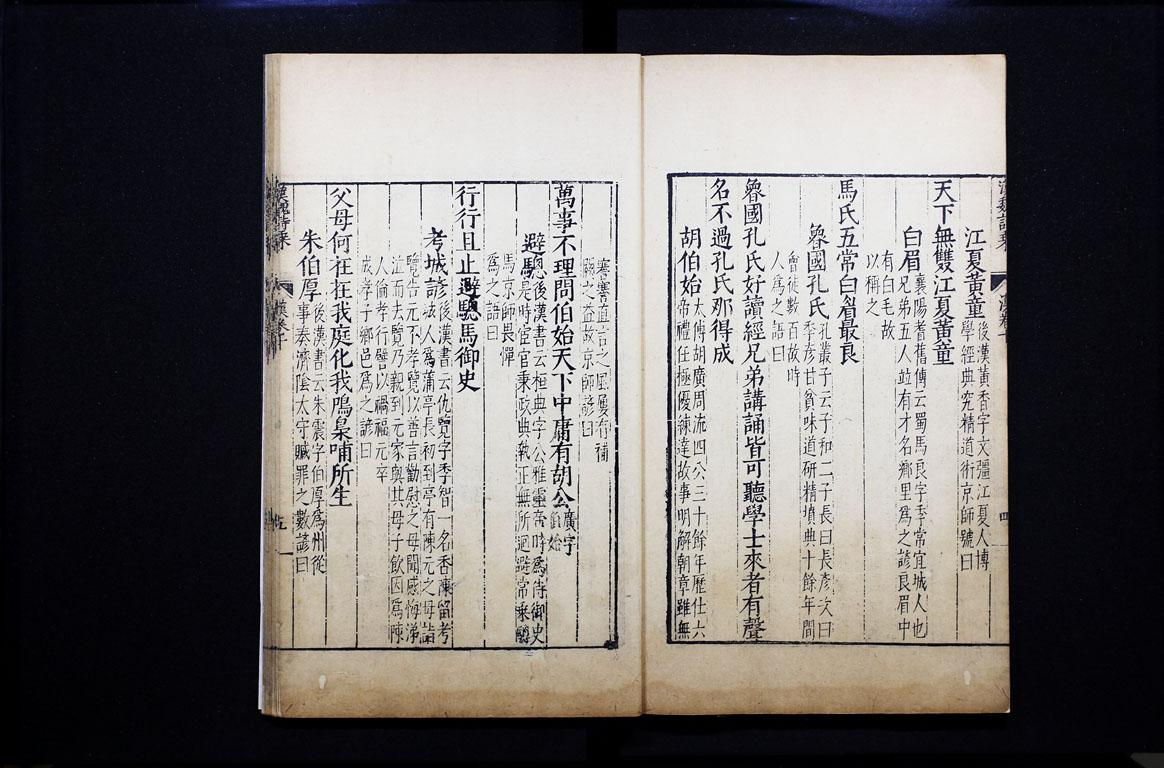 江夏黃童後漢黃香字文彊江夏人博
學經典究精道術京師號曰
天下無雙江夏黃童
白眉襄陽耆舊傳云蜀馬良字季常宜城人也
兄弟五人並有才名鄉里為之諺良眉中
有白毛故
以稱之
馬氏五常白眉最良
魯國孔氏孔叢子云子和二子長曰長彥次曰
季彥甘貧味道研精墳典十餘年間
會徒數百故時
人為之語曰
魯國孔氏好讀經兄弟講誦皆可聽學士來者有聲
名不過孔氏那得成
胡伯始太傅胡廣周流四公三十餘年歷仕六
帝禮任極優練達故事明解朝章雖無
謇謇直言之風屢有補
闕之益故京師諺曰
萬事不理問伯始天下中庸有胡公廣字
伯始
避驄後漢書云桓典字公雅靈帝時為侍御史
是時宦官秉政典執正無所迴避常乘驄
馬京師畏憚
為之語曰
行行且止避驄馬御史
考城諺後漢書云仇覽字季智一名香陳留考
城人為蒲亭長初到亭有陳元之母詣
覽告元不孝覽以善言勸慰之母聞感悔涕
泣而去覽乃親到元家與其母子飲因為陳
人倫孝行譬以禍福元卒
成孝子鄉邑為之諺曰
父母何在在我庭化我鳲梟哺所生
朱伯厚後漢書云朱震字伯厚為州從
事奏濟陰太守贓罪之數諺曰